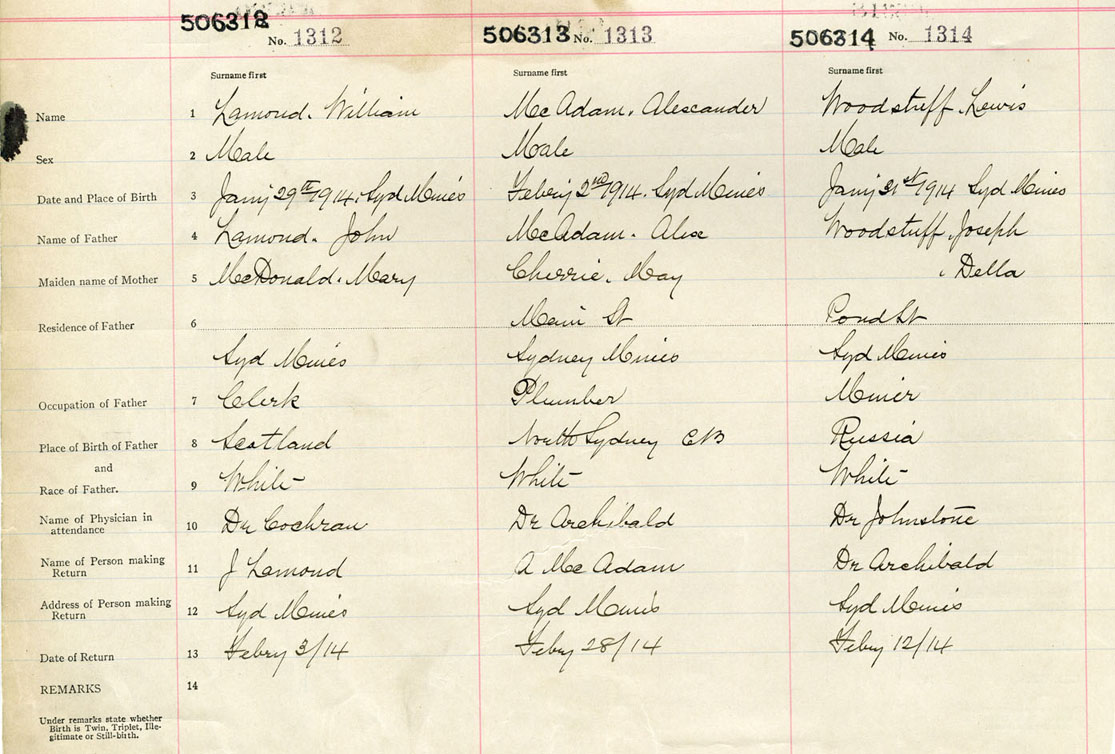 506312 No. 1312 506313 No. 1313 506314 No. 1314
Surname first Surname first Surname first
Name 1 Lamond. William McAdam. Alexander Woodstuff. Lewis
Sex 2 Male Male Male
Date and Place of Birth 3 Jany 29th 1914. Syd Mines Febry 2nd 1914. Syd Mines Jany 31st 1914 Syd Mines
Name of Father 4 Lamond. John McAdam. Alex Woodstuff. Joseph
Maiden name of Mother 5 McDonald. Mary Cherrie. May , Della
Residence of Father 6 Main St Pond St
Syd Mines Sydney Mines Syd Mines
Occupation of Father 7 Clerk Plumber Miner
Place of Birth of Father 8 Scotland North Sydney CB Russia
and
Race of Father. 9 White White White
Name of Physician in
attendance 10 Dr Cochran Dr Archibald Dr Johnstone
Name of Person making
Return 11 J Lamond A McAdam Dr Archibald
Address of Person making
Return 12 Syd Mines Syd Mines Syd Mines
Date of Return 13 Febry 3/14 Febry 28/14 Febry 12/14
REMARKS 14
Under remarks state whether
Birth is Twin, Triplet, Ille-
gitimate or Still-birth.